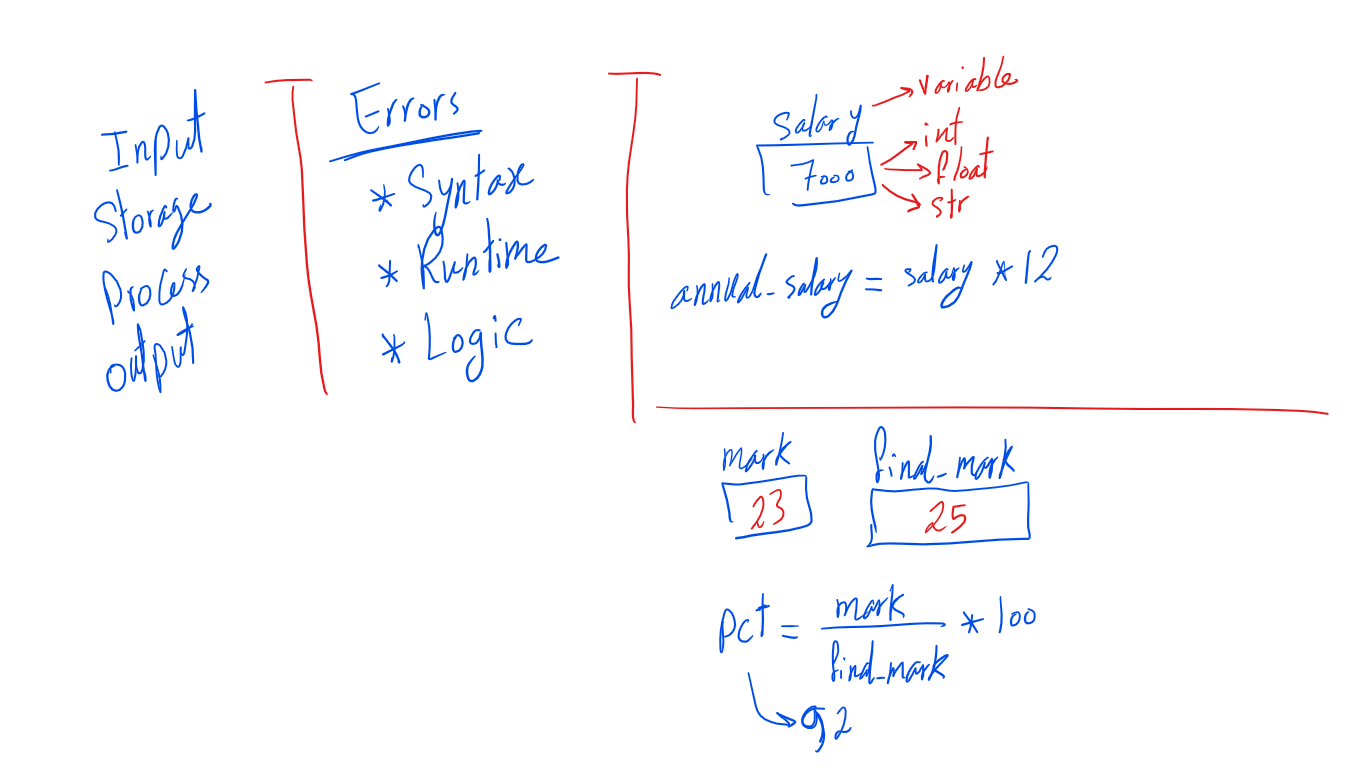 Input
Storage
Process
output
Errors
* Syntax
* Runtime
* Logic
salary
variable
7000
int
float
str
annual_salary = salary * 12
mark
final_mark
23
25
pct = mark / final_mark * 100
92